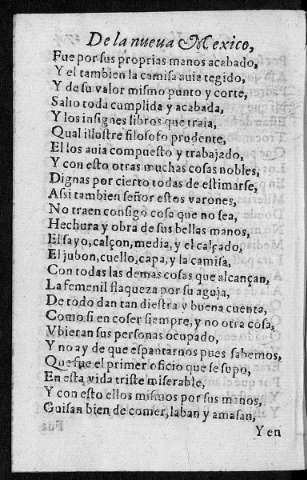 De la nueva Mexico,
Fue por sus proprias manos acabado,
Y el tambien la camisa auia tegido,
Y de su valor mismo punto y corte,
Salio toda cumplida y acabada,
Y los insignes libros que traia,
Qual illustre filosofo prudente,
El los auia compuesto y trabajado,
Y con esto otras muchas cosas nobles,
Dignas por cierto todas de estimarse,
Assi tambien señor estos varones,
No traen consigo cosa que no sea,
Hechura y obra de sus bellas manos,
El sayo, calçon, media, y el calçado,
El jubon, cuello, capa, y la camisa,
Con todas las demas cosas que alcançan,
La femenil flaqueza por su aguja,
De todo dan tan diestra y buena cuenta,
Como si en coser siempre, y no otra cosa,
Vbieran sus personas ocupado,
Y no ay de que espantarnos pues sabemos,
Que fue el primer oficio que se supo,
En esta vida triste miserable,
Y con esto ellos mismos por sus manos,
Guisan bien de comer, laban y amasan,
Y en